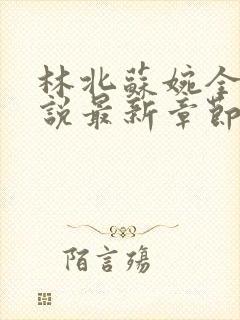 林北蘇婉全
說最新章節
陌言殤